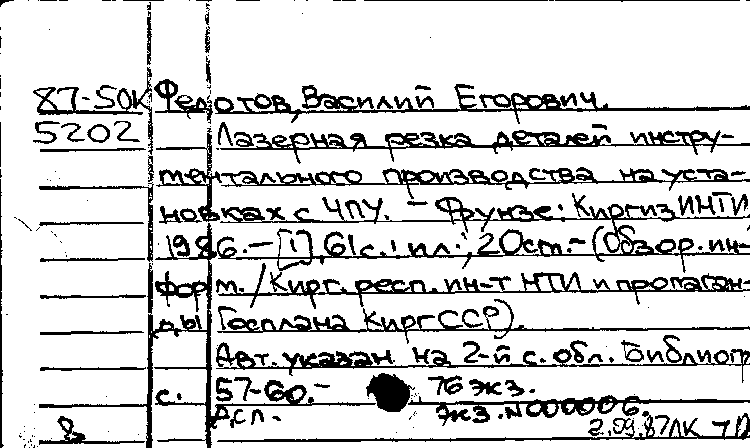 87-50К Федотов, Василий Егорович.
5202 Лазерная резка деталей инстру-
ментального производства на уста-
новках с ЧПУ. - Фрунзе: КиргизИНТИ
1986.- [1], 61 с.: ил.; 20 см.- (Обзор. ин-
форм. / Кирг. респ. ин-т НТИ и пропаган-
ды Госплана КиргССР).
Авт. указан на 2-й с. обл. Библиогр
с. 57-60.- 76 экз.
экз. N000006.
2.09.87